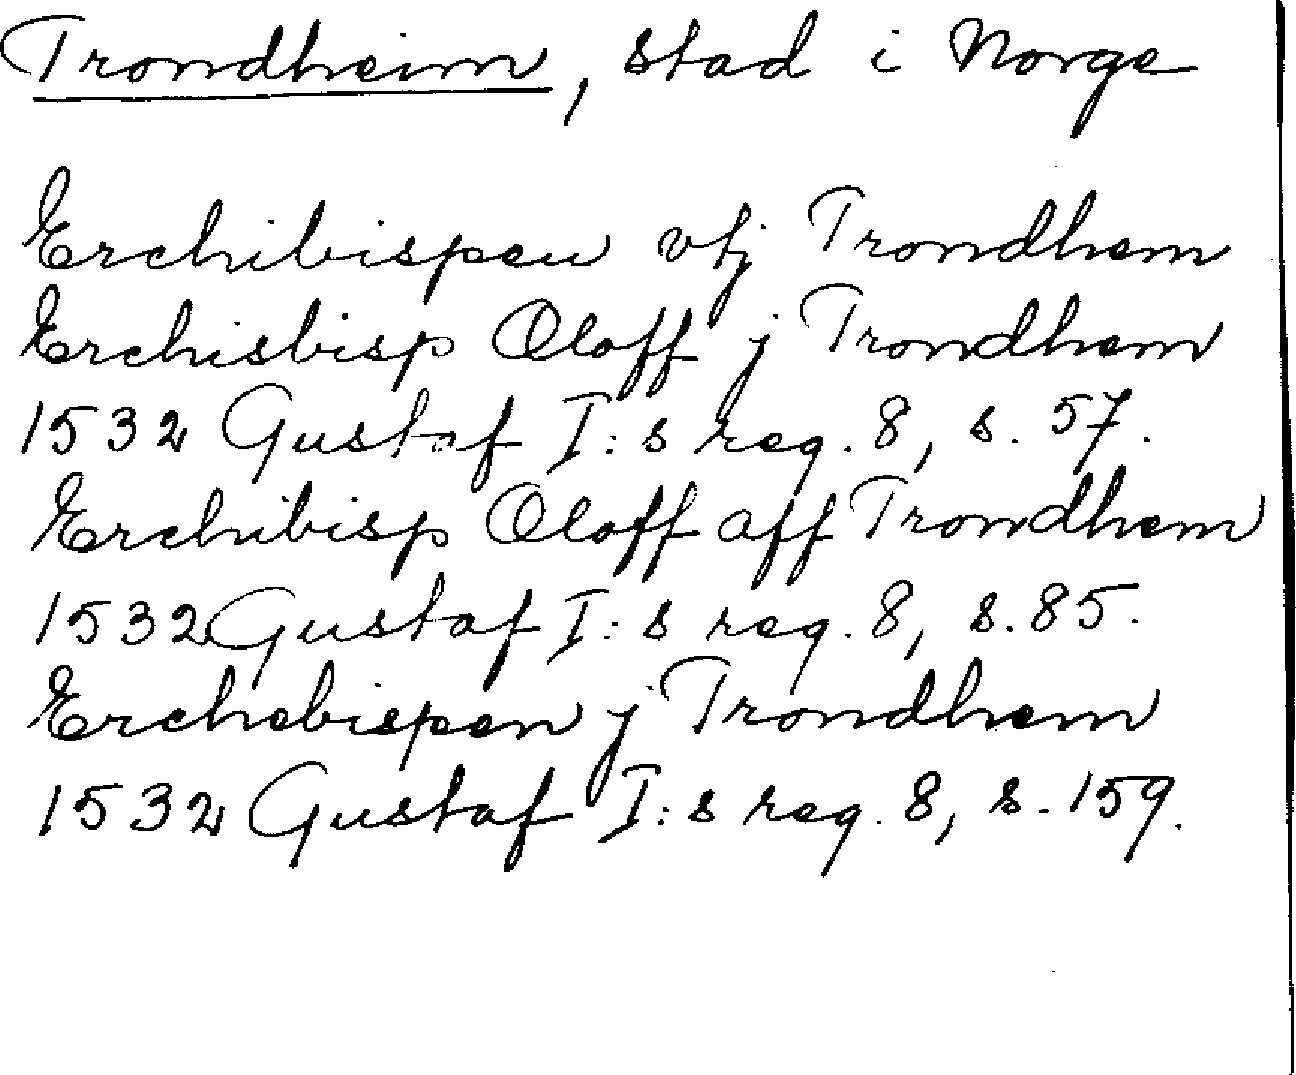 Trondheim, stad i Norge
Erchibispen vtj Trondhem
Erchisbisp Oloff j Trondhem
1532 Gustaf I:s reg. 8, s. 57.
Erchibisp Oloff aff Trondhem
1532 Gustaf I:s reg. 8, s. 85.
Erchebispen j Trondhem
1532 Gustaf I:s reg. 8, s. 159.